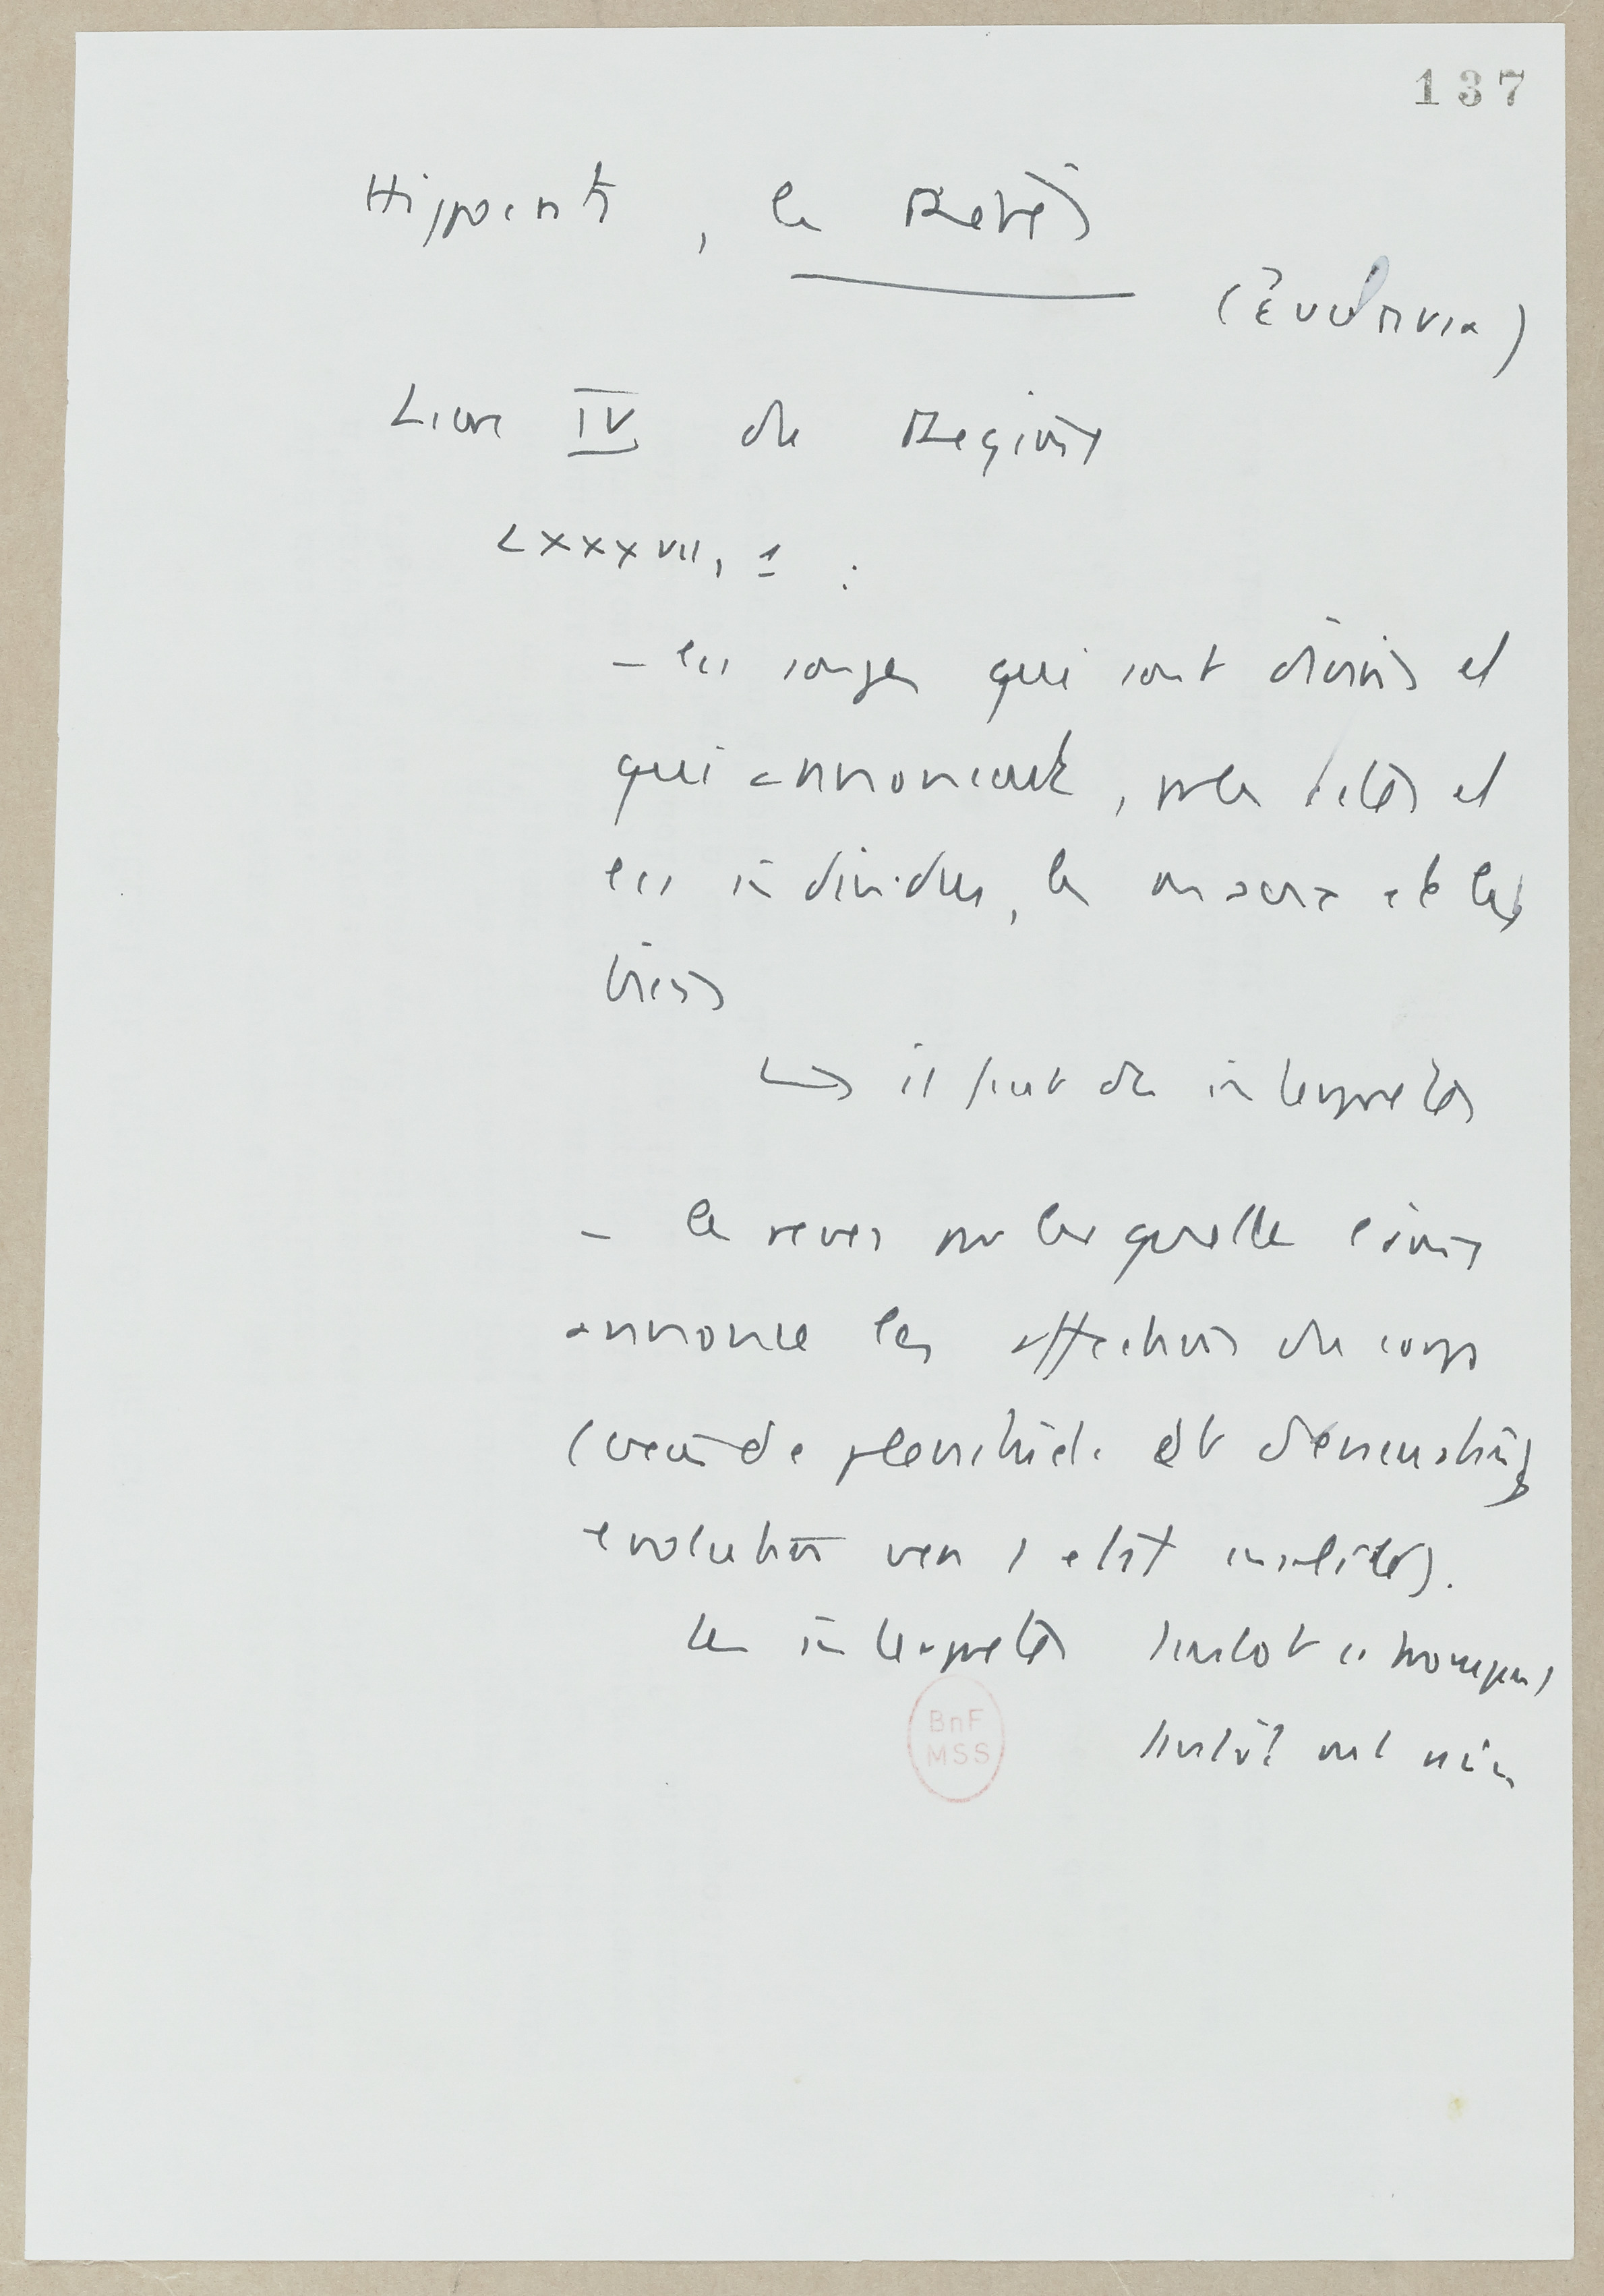 137
Hippocrate, les Rêves
(ἐνύπνια)
Livre IV du Régime
LXXXVII, 1 :
- les songes qui sont divins et
qui annoncent, pr les cités et
les individus, les maux et les
biens
↳ il faut des interprètes
- les rêves par lesquelles l'âme
annonce les affections du corps
(excès de plénitude et d'évacuation,
évolution vers l'état).
Les interprètes tantôt se trompent
tantôt
BnF
MSS